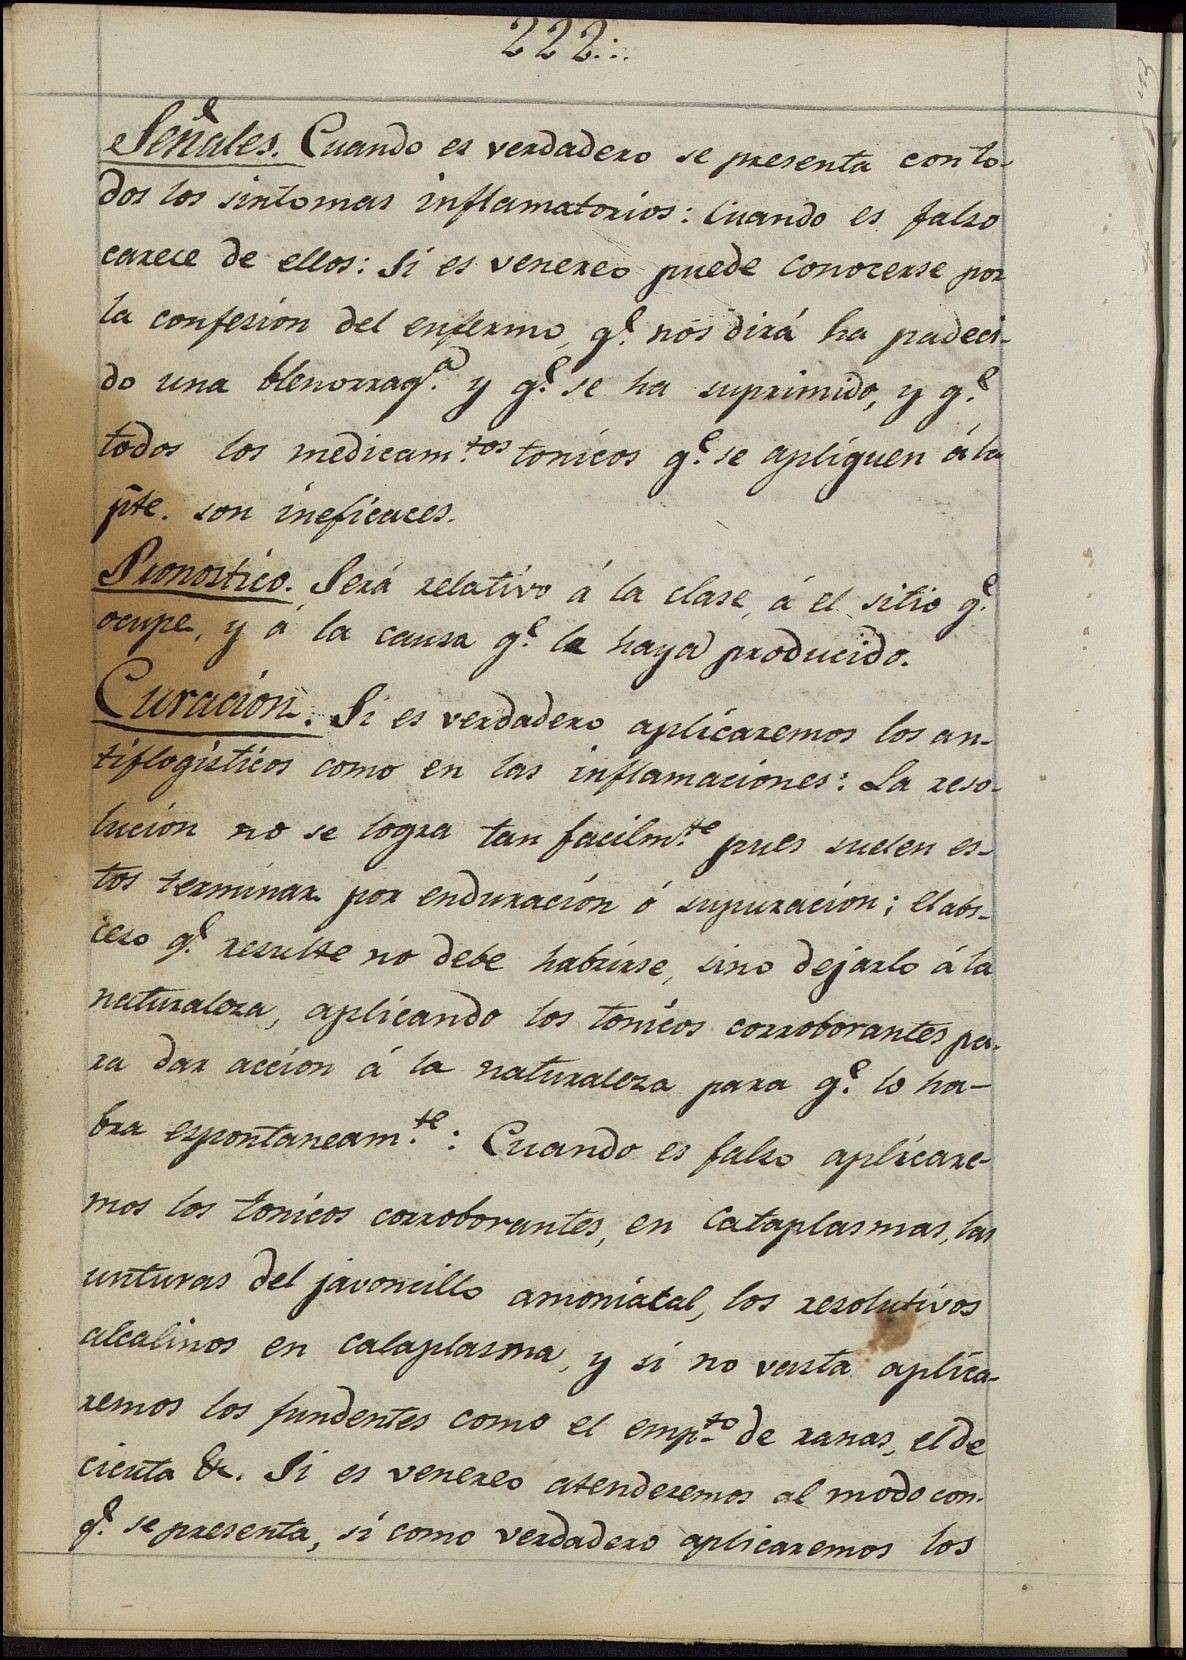 222.:.
Señales. Cuando es verdadero se presenta con to-
dos los sintomas inflamatorios: Cuando es falso
carece de ellos: Si es venereo puede conocerse por
la confesion del enfermo, q.e nos dirá ha padeci-
do una blenorrag.a y q.e se ha suprimido, y q.e
todos los medicam.tos tonicos q.e se apliquen á la
pte. son ineficaces.
Pronostico. Será relativo á la clase, á el sitio q.e
ocupe, y á la causa q.e la haya producido.
Curación. Si es verdadero aplicaremos los an-
tiflogisticos como en las inflamaciones: La reso-
lucion no se logra tan facilm.te pues suelen es-
tos terminar por enduración ó supuracion; el abs-
ceso q.e resulte no debe habrirse, sino dejarlo á la
naturaleza, aplicando los tonicos corroborantes pa-
ra dar accion á la naturaleza para q.e lo ha-
bra espontaneam.te: Cuando es falso aplicare-
mos los tonicos corroborantes, en cataplasmas, las
unturas del javoncillo amoniacal, los resolutivos
alcalinos en cataplasma, y si no vasta aplica-
remos los fundentes como el emp.to de ranas, el de
cicuta &c. Si es venereo atenderemos al modo con-
q.e se presenta, si como verdadero aplicaremos los